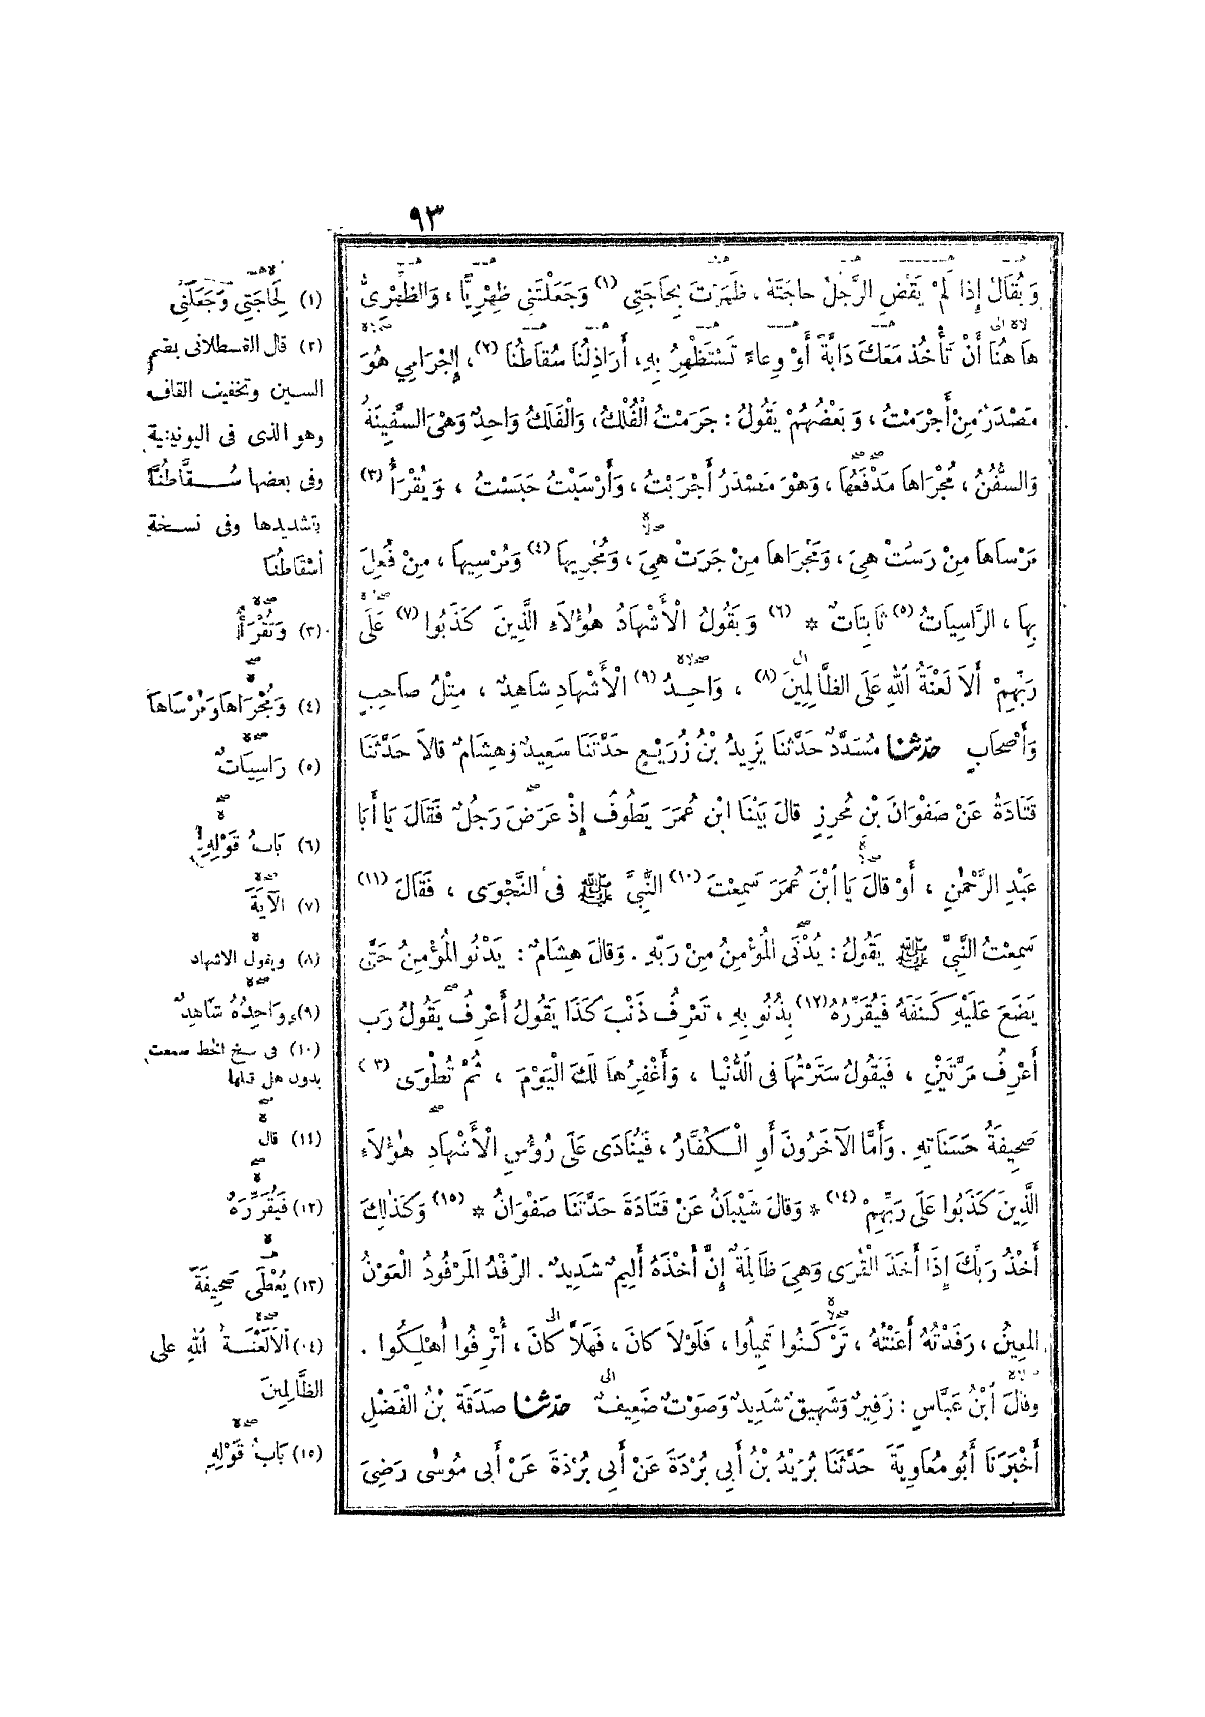 ٩٣
وَيُقَالُ إِذَا لَمْ يَقْضِ الرَّجُلُ حاجَتَهُ ، ظَهَرْتَ بِحَاجَتِى (١) وَجَعَلْتَنِى ظِهْرِيًّا ، وَالظِّهْرِىُّ
هَا هُنَا أَنْ تَأْخُذَ مَعَكَ دَابَّةً أَوْ وِعاءً تَسْتَظْهِرُ بِهِ، أَرَاذِلُنَا سُقاطُنَا (٢) ، إِجْرَامِي هُوَ
مَصْدَرٌ مِنْ أَجْرَمْتُ ، وَبَعْضُهُمْ يَقُولُ : جَرَمْتُ الْفُلْكُ، وَالْفَلَكُ وَاحِدٌ وَهْىَ السَّفِينَةُ
وَالسُّفُنُ ، مُجْرَاها مَدْفَعُهَا ، وَهْوَ مَصْدَرُ أَجْرَيْتُ ، وَأَرْسَيْتُ حَبَسْتُ ، وَيُقْرَأُ (٣)
مَرْسَاهَا مِنْ رَسَتْ هِىَ ، وَمَجْرَاهَا مِنْ جَرَتْ هِىَ ، وَمُجْرِيهَا (٤) وَمُرْسِيهَا ، مِنْ فُعِلَ
بِهَا ، الرَّاسِيَاتُ (٥) ثَابِتَاتٌ * (٦) وَيَقُولُ الْأَشْهَادُ هٰؤُلاَءِ الَّذِينَ كَذَبُوا (٧) عَلَى
رَبِّهِمْ أَلاَ لَعْنَةُ اللهِ عَلَى الظَّالِمِينَ (٨) ، وَاحِدُ (٩) الْأَشْهَادِ شَاهِدٌ ، مِثْلُ صَاحِبٍ
وَأَصْحَابٍ حَدَّثَنَا مُسَدَّدٌ حَدَّثَنَا يَزِيدُ بْنُ زُرَيْعٍ حَدَّثَنَا سَعِيدٌ وَهِشَامٌ قالاَ حَدَّثَنَا
قَتَادَةُ عَنْ صَفْوَانَ بْنِ مُحْرِزٍ قالَ بَيْنَا ابْنُ عُمَرَ يَطُوفُ إِذْ عَرَضَ رَجُلٌ فَقَالَ يَا أَبَا
عَبْدِ الرَّحْمٰنِ ، أَوْ قالَ يَا ابْنَ عُمَرَ سَمِعْتَ (١٠) النَّبِيَّ ﷺ فِى النَّجْوَى ، فَقَالَ (١١)
سَمِعْتُ النَّبِيَّ ﷺ يَقُولُ : يُدْنَى الْمُؤْمِنُ مِنْ رَبِّهِ . وَقالَ هِشَامٌ : يَدْنُو الْمُؤْمِنُ حَتَّى
يَضَعَ عَلَيْهِ كَنَفَهُ فَيُقَرِّرُهُ (١٢) بِذُنُوبِهِ ، تَعْرِفُ ذَنْبَ كَذَا يَقُولُ أَعْرِفُ يَقُولُ رَبِّ
أَعْرِفُ مَرَّتَيْنِ ، فَيَقُولُ سَتَرْتُهَا فِى الدُّنْيَا ، وَأَغْفِرُهَا لَكَ الْيَوْمَ ، ثُمَّ تُطْوَى (٣ )
صَحِيفَةُ حَسَنَاتِهِ . وَأَمَّا الآخَرُونَ أَوِ الْكُفَّارُ ، فَيُنَادَى عَلَى رُؤُسِ الْأَشْهَادِ هٰؤُلاَءِ
الَّذِينَ كَذَبُوا عَلَى رَبِّهِمْ (١٤) * وَقالَ شَيْبَانُ عَنْ قَتَادَةَ حَدَّثَنَا صَفْوَانُ * (١٥) وَكَذٰلِكَ
أَخْذُ رَبِّكَ إِذَا أَخَذَ الْقُرَى وَهِيَ ظَالِمَةٌ إِنَّ أَخْذَهُ أَلِيمٌ شَدِيدٌ . الرِّفْدُ الْمَرْفُودُ الْعَوْنُ
المعِينُ ، رَفَدْتُهُ أَعَنْتُهُ ، تَرْكَنُوا تَمِيلُوا ، فَلَوْلاَ كانَ ، فَهَلاَّ كَانَ ، أُتْرِفُوا أُهْلِكُوا .
وقالَ ابْنُ عَبَّاسٍ : زَفِيرٌ وَشَهِيقٌ شَدِيدٌ وَصَوْتٌ ضَعِيفٌ حَدَّثَنَا صَدَقَةُ بْنُ الْفَضْلِ
أَخْبَرَنَا أَبُو مُعَاوِيَةَ حَدَّثَنَا بُرَيْدُ بْنُ أَبِي بُرْدَةَ عَنْ أَبِي بُرْدَةَ عَنْ أَبِى مُوسٰى رَضِيَ
(١) لِحَاجَتِي وَجَعَلَنِي
(٢) قال القسطلانى بضم
السين وتخفيف القاف
وهو الذى فى اليونينية
وفى بعضها سُقَّاطُنَا
بتشديدها وفى نسخة
أَسْقَاطُنَا
(٣) وَتُقْرَأُ
(٤) وَمُجْرَاهَا وَمُرْسَاهَا
(٥) رَاسِيَاتٌ
(٦) بَابُ قَوْلِهِ
(٧) الآيَةَ
(٨) ويقول الاشهاد
(٩) وَاحِدُهُ شَاهِدٌ
(١٠) فى نسخ الخط سمعت
بدون هل قبلها
(١١) قال
(١٢) فَيُقَرِّرَهُ
(١٣) يُعْطَى صَحِيفَةَ
(٠٤) أَلاَ لَعْنَةُ اللهِ على
الظَّالِمِينَ
(١٥) بَابُ قَوْلِهِ